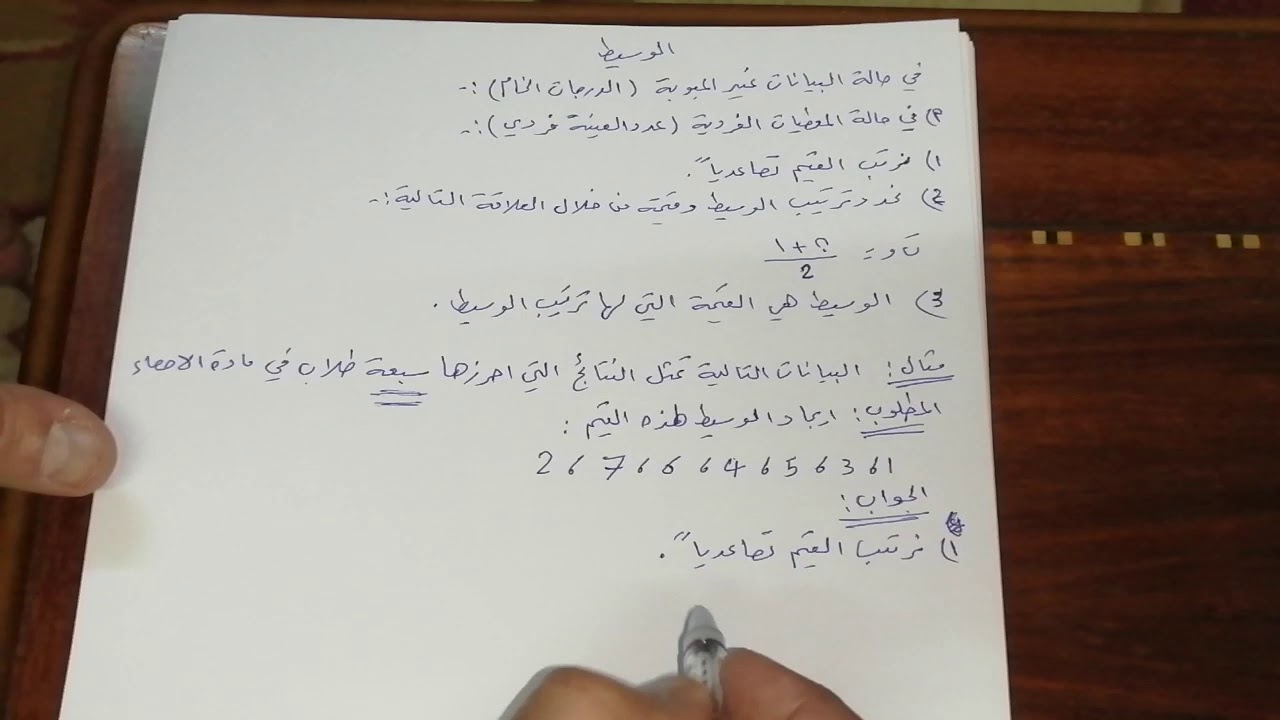 الوسيط
في حالة البيانات غير المبوبة (الدرجات الخام) :-
أ) في حالة المعطيات الفردية (عدد العينة فردي) :-
١) نرتب القيم تصاعدياً.
2) نحدد ترتيب الوسيط وقيمته من خلال العلاقة التالية :-
ت و = (ن + ١) / 2
3) الوسيط هي القيمة التي لها ترتيب الوسيط.
مثال : البيانات التالية تمثل النتائج التي احرزها سبعة طلاب في مادة الاحصاء
المطلوب : ايجاد الوسيط لهذه القيم :
1 ، 3 ، 5 ، 4 ، 6 ، 7 ، 2
الجواب :
١) نرتب القيم تصاعدياً.